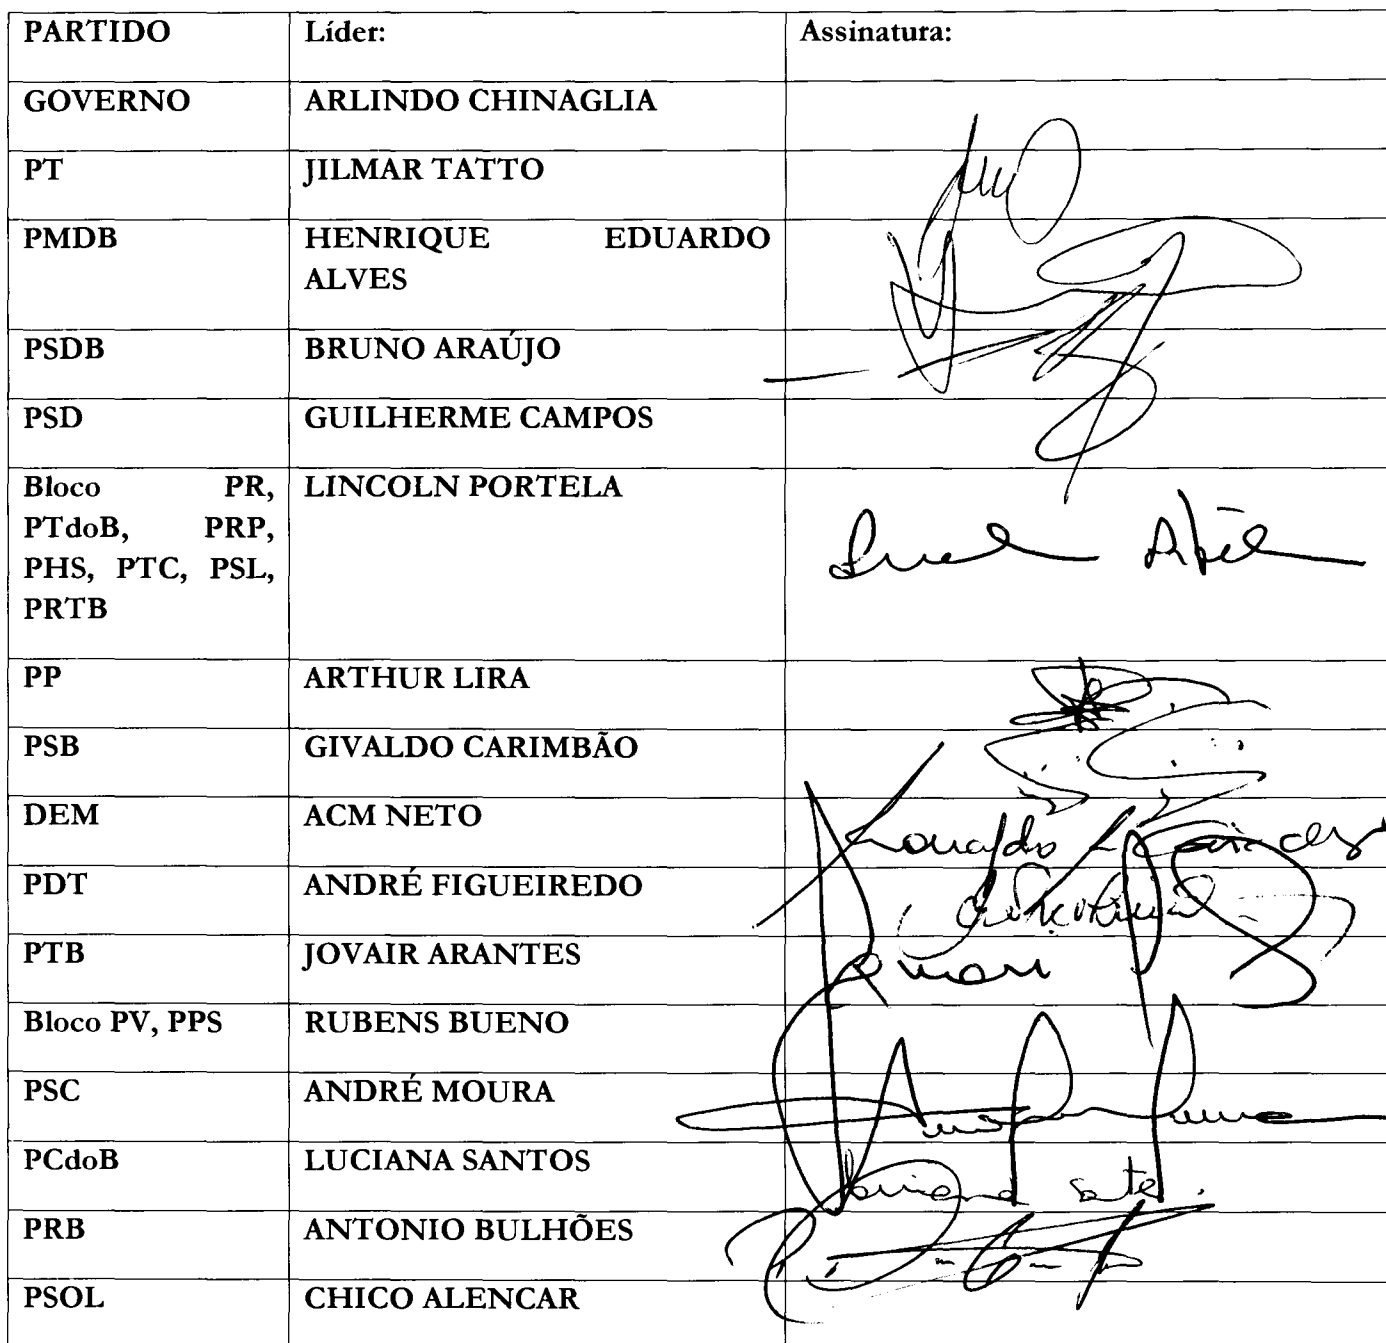 PARTIDO Líder: Assinatura:
GOVERNO ARLINDO CHINAGLIA
PT JILMAR TATTO
PMDB HENRIQUE EDUARDO
ALVES
PSDB BRUNO ARAÚJO
PSD GUILHERME CAMPOS
Bloco PR, LINCOLN PORTELA
PTdoB, PRP,
PHS, PTC, PSL,
PRTB
PP ARTHUR LIRA
PSB GIVALDO CARIMBÃO
DEM ACM NETO
Ronaldo
PDT ANDRÉ FIGUEIREDO
PTB JOVAIR ARANTES
Bloco PV, PPS RUBENS BUENO
PSC ANDRÉ MOURA
PCdoB LUCIANA SANTOS
PRB ANTONIO BULHÕES
PSOL CHICO ALENCAR